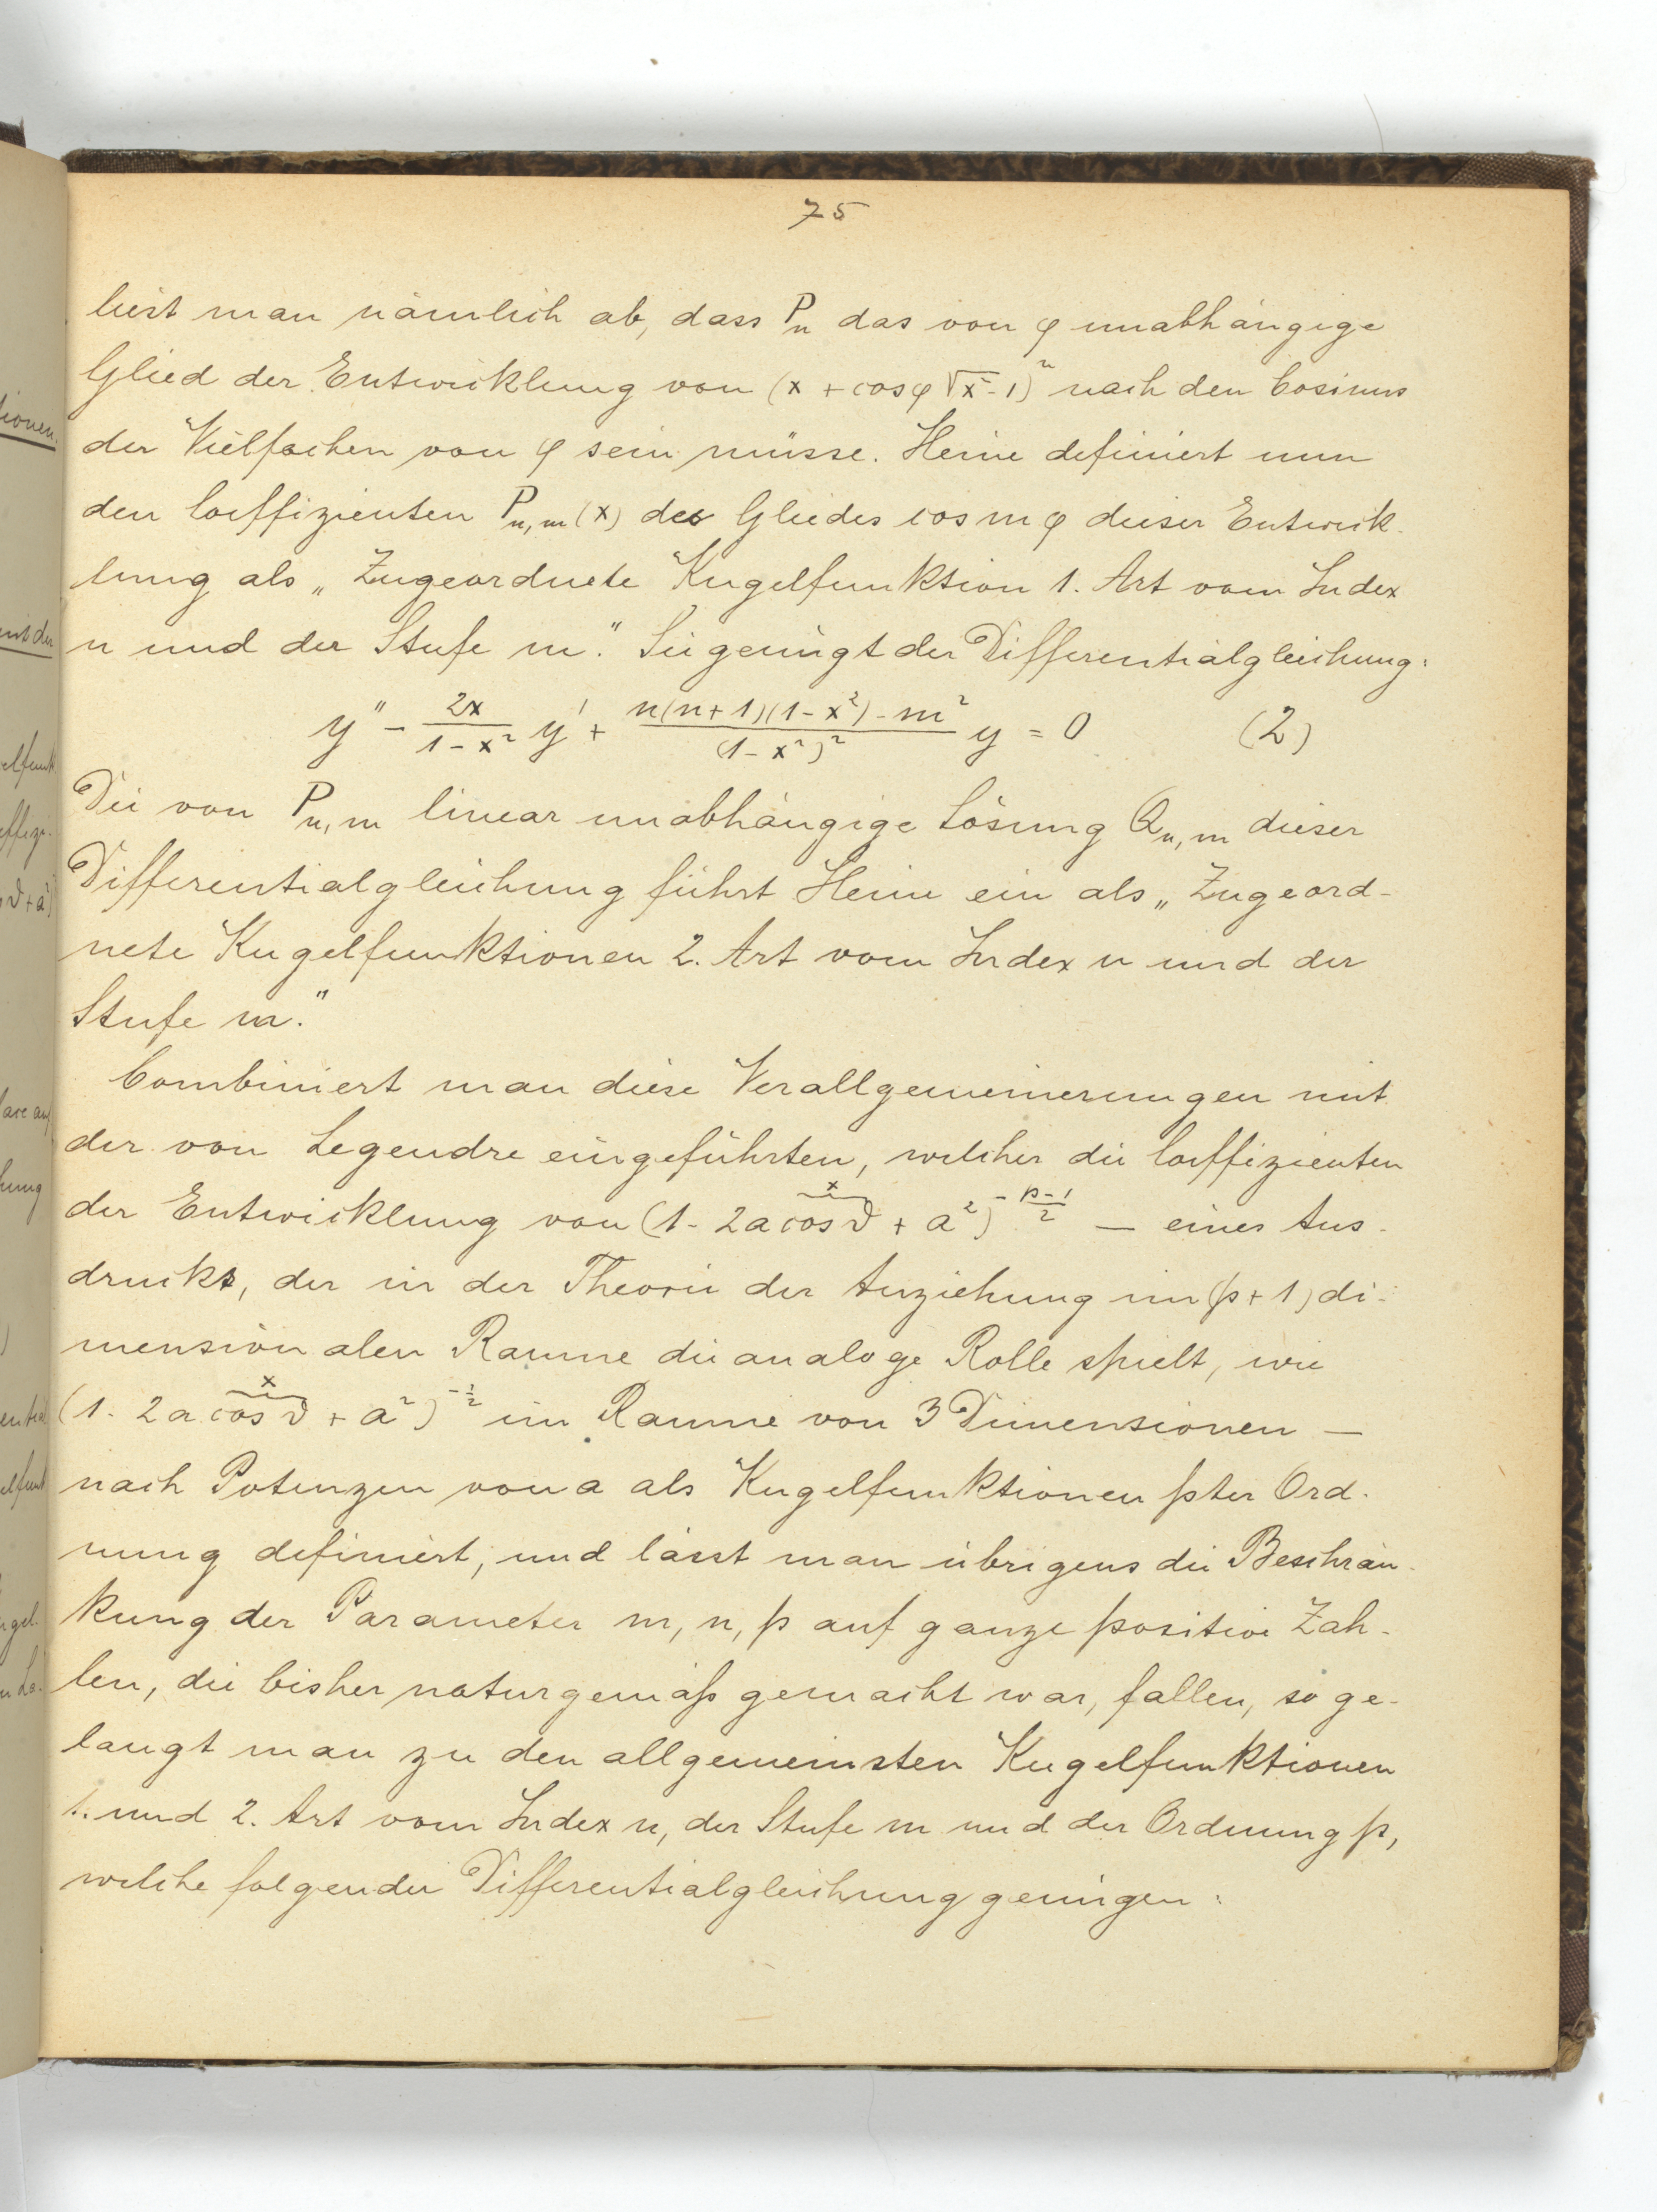 75
liest man nämlich ab, dass P_n das von φ unabhängige
Glied der Entwicklung von (x + cosφ √x²-1)^n nach den Cosinus
der Vielfachen von φ sein müsse. Heine definiert nun
den Coeffizienten P_n,m(x) des Gliedes cos mφ dieser Entwick-
lung als „Zugeordnete Kugelfunktion 1. Art vom Index
n und der Stufe m.“ Sie genügt der Differentialgleichung:
y'' - 2x/(1-x²) y' + (n(n+1)(1-x²)-m²)/(1-x²)² y = 0 (2)
Die von P_n,m linear unabhängige Lösung Q_n,m dieser
Differentialgleichung führt Heine ein als „Zugeord-
nete Kugelfunktionen 2. Art vom Index n und der
Stufe m.“
Combiniert man diese Verallgemeinerungen mit
der von Legendre eingeführten, welcher die Coeffizienten
x
der Entwicklung von (1 - 2a cos ϑ + a²)^(-(p-1)/2) — eines Aus-
drucks, der in der Theorie der Anziehung im (p+1) di-
mensionalen Raume die analoge Rolle spielt, wie
x
(1 - 2a cos ϑ + a²)^(-1/2) im Raume von 3 Dimensionen —
nach Potenzen von a als Kugelfunktionen pter Ord-
nung definiert, und lässt man übrigens die Beschrän-
kung der Parameter m, n, p auf ganze positive Zah-
len, die bisher naturgemäß gemacht war, fallen, so ge-
langt man zu den allgemeinsten Kugelfunktionen
1. und 2. Art vom Index n, der Stufe m und der Ordnung p,
welche folgender Differentialgleichung genügen: